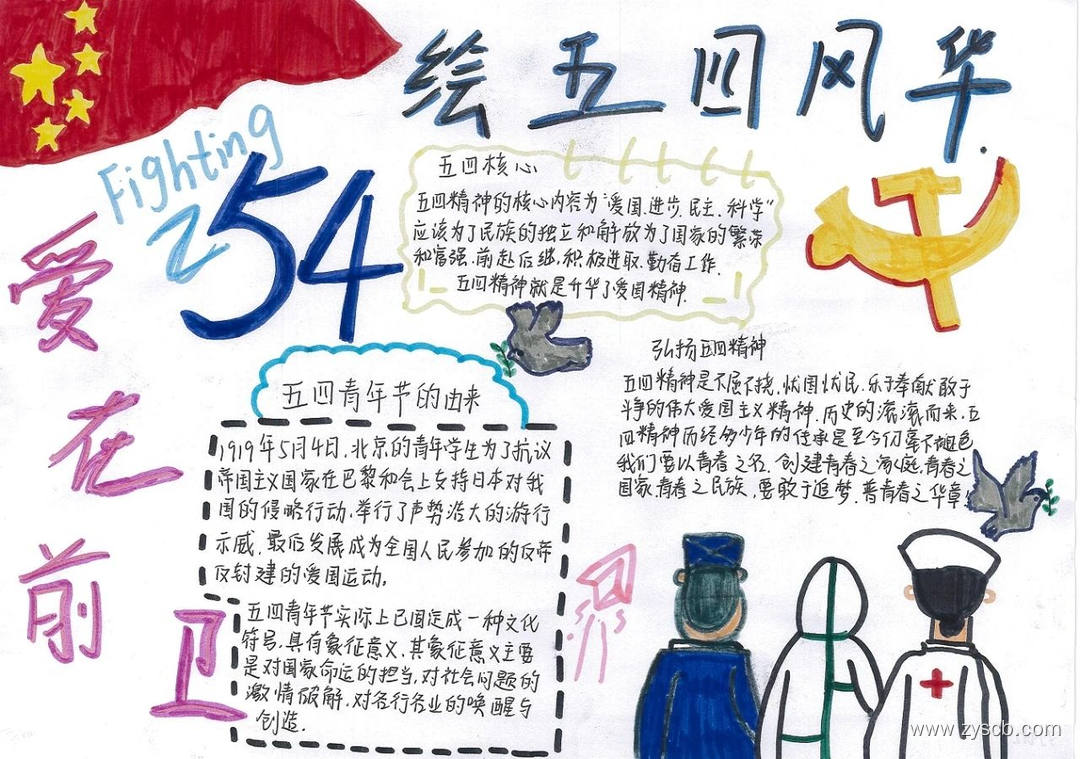 绘五四风华
Fighting
54
爱在前卫
五四核心
五四精神的核心内容为“爱国、进步、民主、科学”
应该为了民族的独立和解放为了国家的繁荣
和富强,前赴后继,积极进取,勤奋工作.
五四精神就是升华了爱国精神.
五四青年节的由来
1919年5月4日,北京的青年学生为了抗议
帝国主义国家在巴黎和会上支持日本对我
国的侵略行动,举行了声势浩大的游行
示威,最后发展成为全国人民参加的反帝
反封建的爱国运动。
五四青年节实际上已固定成一种文化
符号,具有象征意义,其象征意义主要
是对国家命运的担当,对社会问题的
激情破解,对各行各业的唤醒与
创造.
弘扬五四精神
五四精神是不屈不挠,忧国忧民,乐于奉献敢于
斗争的伟大爱国主义精神,历史的滚滚而来,五
四精神历经多少年的传承是至今仍毫不褪色
我们要以青春之名,创建青春之家庭,青春之
国家,青春之民族,要敢于追梦,普青春之华章!
www.zyscb.com